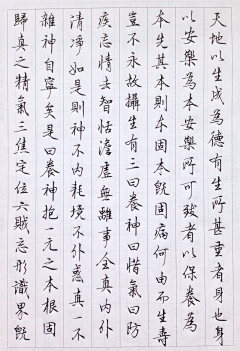 天地以生成為德有生所甚重者身也身
以安樂為本安樂所可致者以保養為
本先其本則本固本既固病何由而生壽
豈不永故攝生有三曰養神曰惜氣曰防
疾忘情去智恬澹虛無離事全真內外
清凈如是則神不內耗境不外惑真一不
雜神自寧矣是曰養神抱一元之本根固
歸真之精氣三焦定位六賊忘形識界既